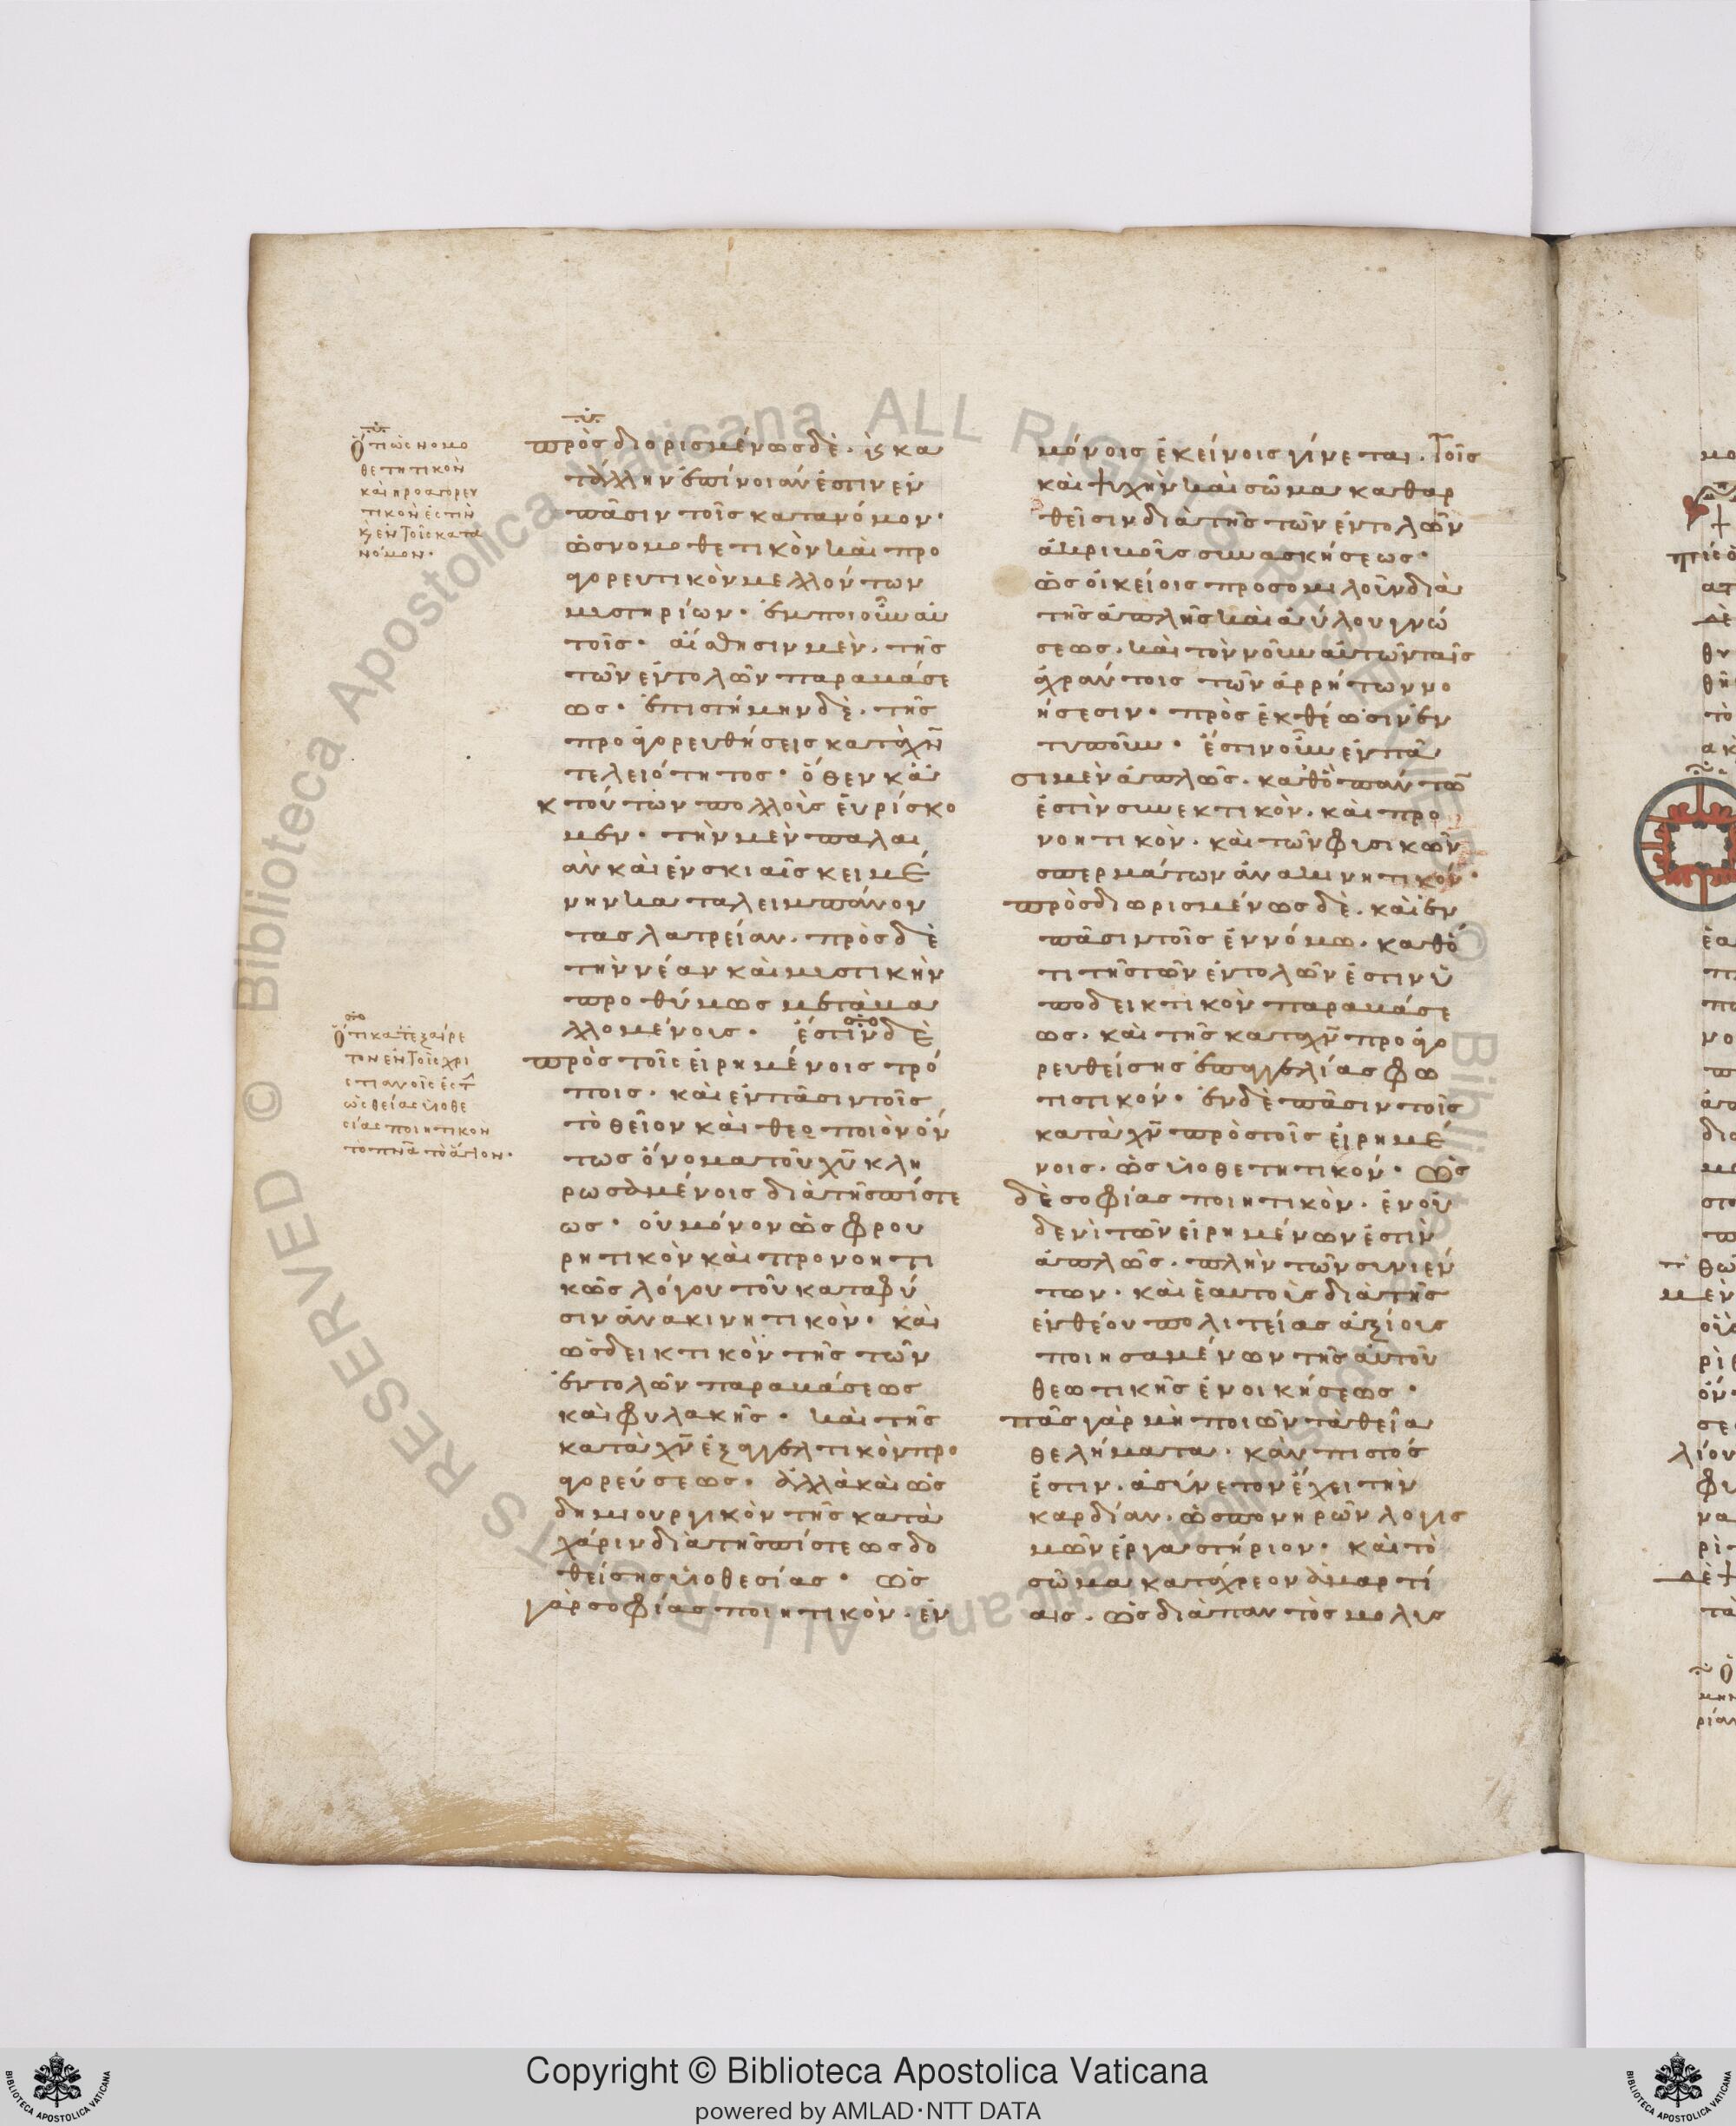 Ὅτι ὡς νομο
θετητικὸν
καὶ προαγορευ
τικὸν ἐστὶν
κ(αὶ) ἐν τοῖς κατὰ
νόμον·
Ὅτι κατεξαίρε
τον ἐν τοῖς χρι
στιανοῖς ἐστ(ὶν)
ὡς θείας υἱοθε
σίας ποιητικον
το πνᾶ τὸ ἅγιον·
προσδιορισμένωσδὲ· κ(αὶ) κα
τἄλλην ἐπίνοιαν ἐστιν ἐν
πᾶσιν τοῖς κατανόμον·
ὡσνομοθετικὸν καὶ προ
αγορευτικὸν μελλόντων
μυστηρίων· ἐμποιοῦν αὐ
τοῖς· αἴσθησιν μὲν· τῆς
τῶν ἐντολῶν παραβάσε
ως· ἐπιστήμην δὲ· τῆς
προαγορευθήσεισ κατὰχν̄
τελειότητος· ὅθεν καὶ
κ τούτων πολλοὺς εὑρίσκο
μεν· τὴν μὲν παλαι
ὰν καὶ ἐν σκιαῖς κειμέ
νην καταλειμπάνον
τας λατρείαν· πρὸς δὲ
τὴν νέαν καὶ μυστικὴν
προθύμως μεταβα
λλομένοις· ἔστιν δὲ
πρὸς τοῖς εἰρημένοις τρό
ποις· καὶ ἐν πᾶσιν τοῖς
τὸ θεῖον καὶ θεοποιὸν ὄν
τως ὄνομα τοῦ χῡ κλη
ρωσαμένοις διὰ τῆς πίστε
ως· οὐ μόνον ὡς φρου
ρητικὸν καὶ προνοητι
κῶς λόγου τοῦ κατα φύ
σιν ἀνακινητικὸν· καὶ
ὡς δεικτικὸν τῆς τῶν
ἐντολῶν παραβάσεως
καὶ φυλακῆς· καὶ τῆς
κατὰ χν̄ ἐξαγγελτικὸν προ
αγορεύσεως· ἀλλὰ καὶ ὡς
δημιουργικὸν τῆς κατὰ
χάριν διὰ τῆς πίστεως δο
θείσης υἱοθεσίας· ὡς
γὰρ σοφίας ποιητικὸν· ἐν
μόνοις ἐκείνοις γίνεται· τοῖς
καὶ ψυχὴν καὶ σῶμα καθαρ
θεῖσιν διὰ τῆς τῶν ἐντολῶν
ἀκριβοῖς συνασκήσεως·
ὡς οἰκείοις προσομιλοῦν διὰ
τῆς ἁπλῆς καὶ ἀΰλου γνώ
σεως· καὶ τὸν νοῦν αὐτῶν ταῖς
ἀχράντοις τῶν ἀρρήτων νο
ήσεσιν· πρὸς ἐκθέωσιν ἐν
τυποῦν· ἔστιν οὖν ἐν πᾶ
σι μὲν ἁπλῶς· καθὸ πάντω(ν)
ἐστὶν συνεκτικὸν· καὶ προ
νοητικὸν· καὶ τῶν φυσικῶν
σπερμάτων ἀνακινητικόν·
προσδιωρισμένως δὲ· καὶ ἐν
πᾶσιν τοῖς ἐννόμω· καθό
τι τῆς τῶν ἐντολῶν ἐστιν ὑ
ποδεικτικὸν παραβάσε
ως· καὶ τῆς κατὰ χν̄ προαγο
ρευθείσης ἐπαγγελίας φω
τιστικόν· ἐν δὲ πᾶσιν τοῖς
κατὰ χν̄ πρὸς τοῖς εἰρημέ
νοις· ὡς υἱοθετητικόν· ὡς
δὲ σοφίας ποιητικὸν· ἐν οὐ
δενὶ τῶν εἰρημένων ἐστὶν
ἁπλῶς· πλὴν τῶν συνιέν
των· καὶ ἑαυτοὺς διὰ τῆς
ἐνθέου πολιτείας ἀξίους
ποιησαμένων τῆς αὐτοῦ
θεωτικῆς ἐνοικήσεως·
πᾶς γὰρ μὴ ποιῶν τὰ θεῖα
θελήματα· κὰν πιστός
ἐστιν· ἀσύνετον ἔχει τὴν
καρδίαν· ὡς πονηρῶν λογισ
μῶν ἐργαστήριον· καὶ τὸ
σῶμα κατάχρεον ἁμαρτί
αις· ὡς διὰ παντὸς μολυσ
Copyright © Biblioteca Apostolica Vaticana
powered by AMLAD·NTT DATA